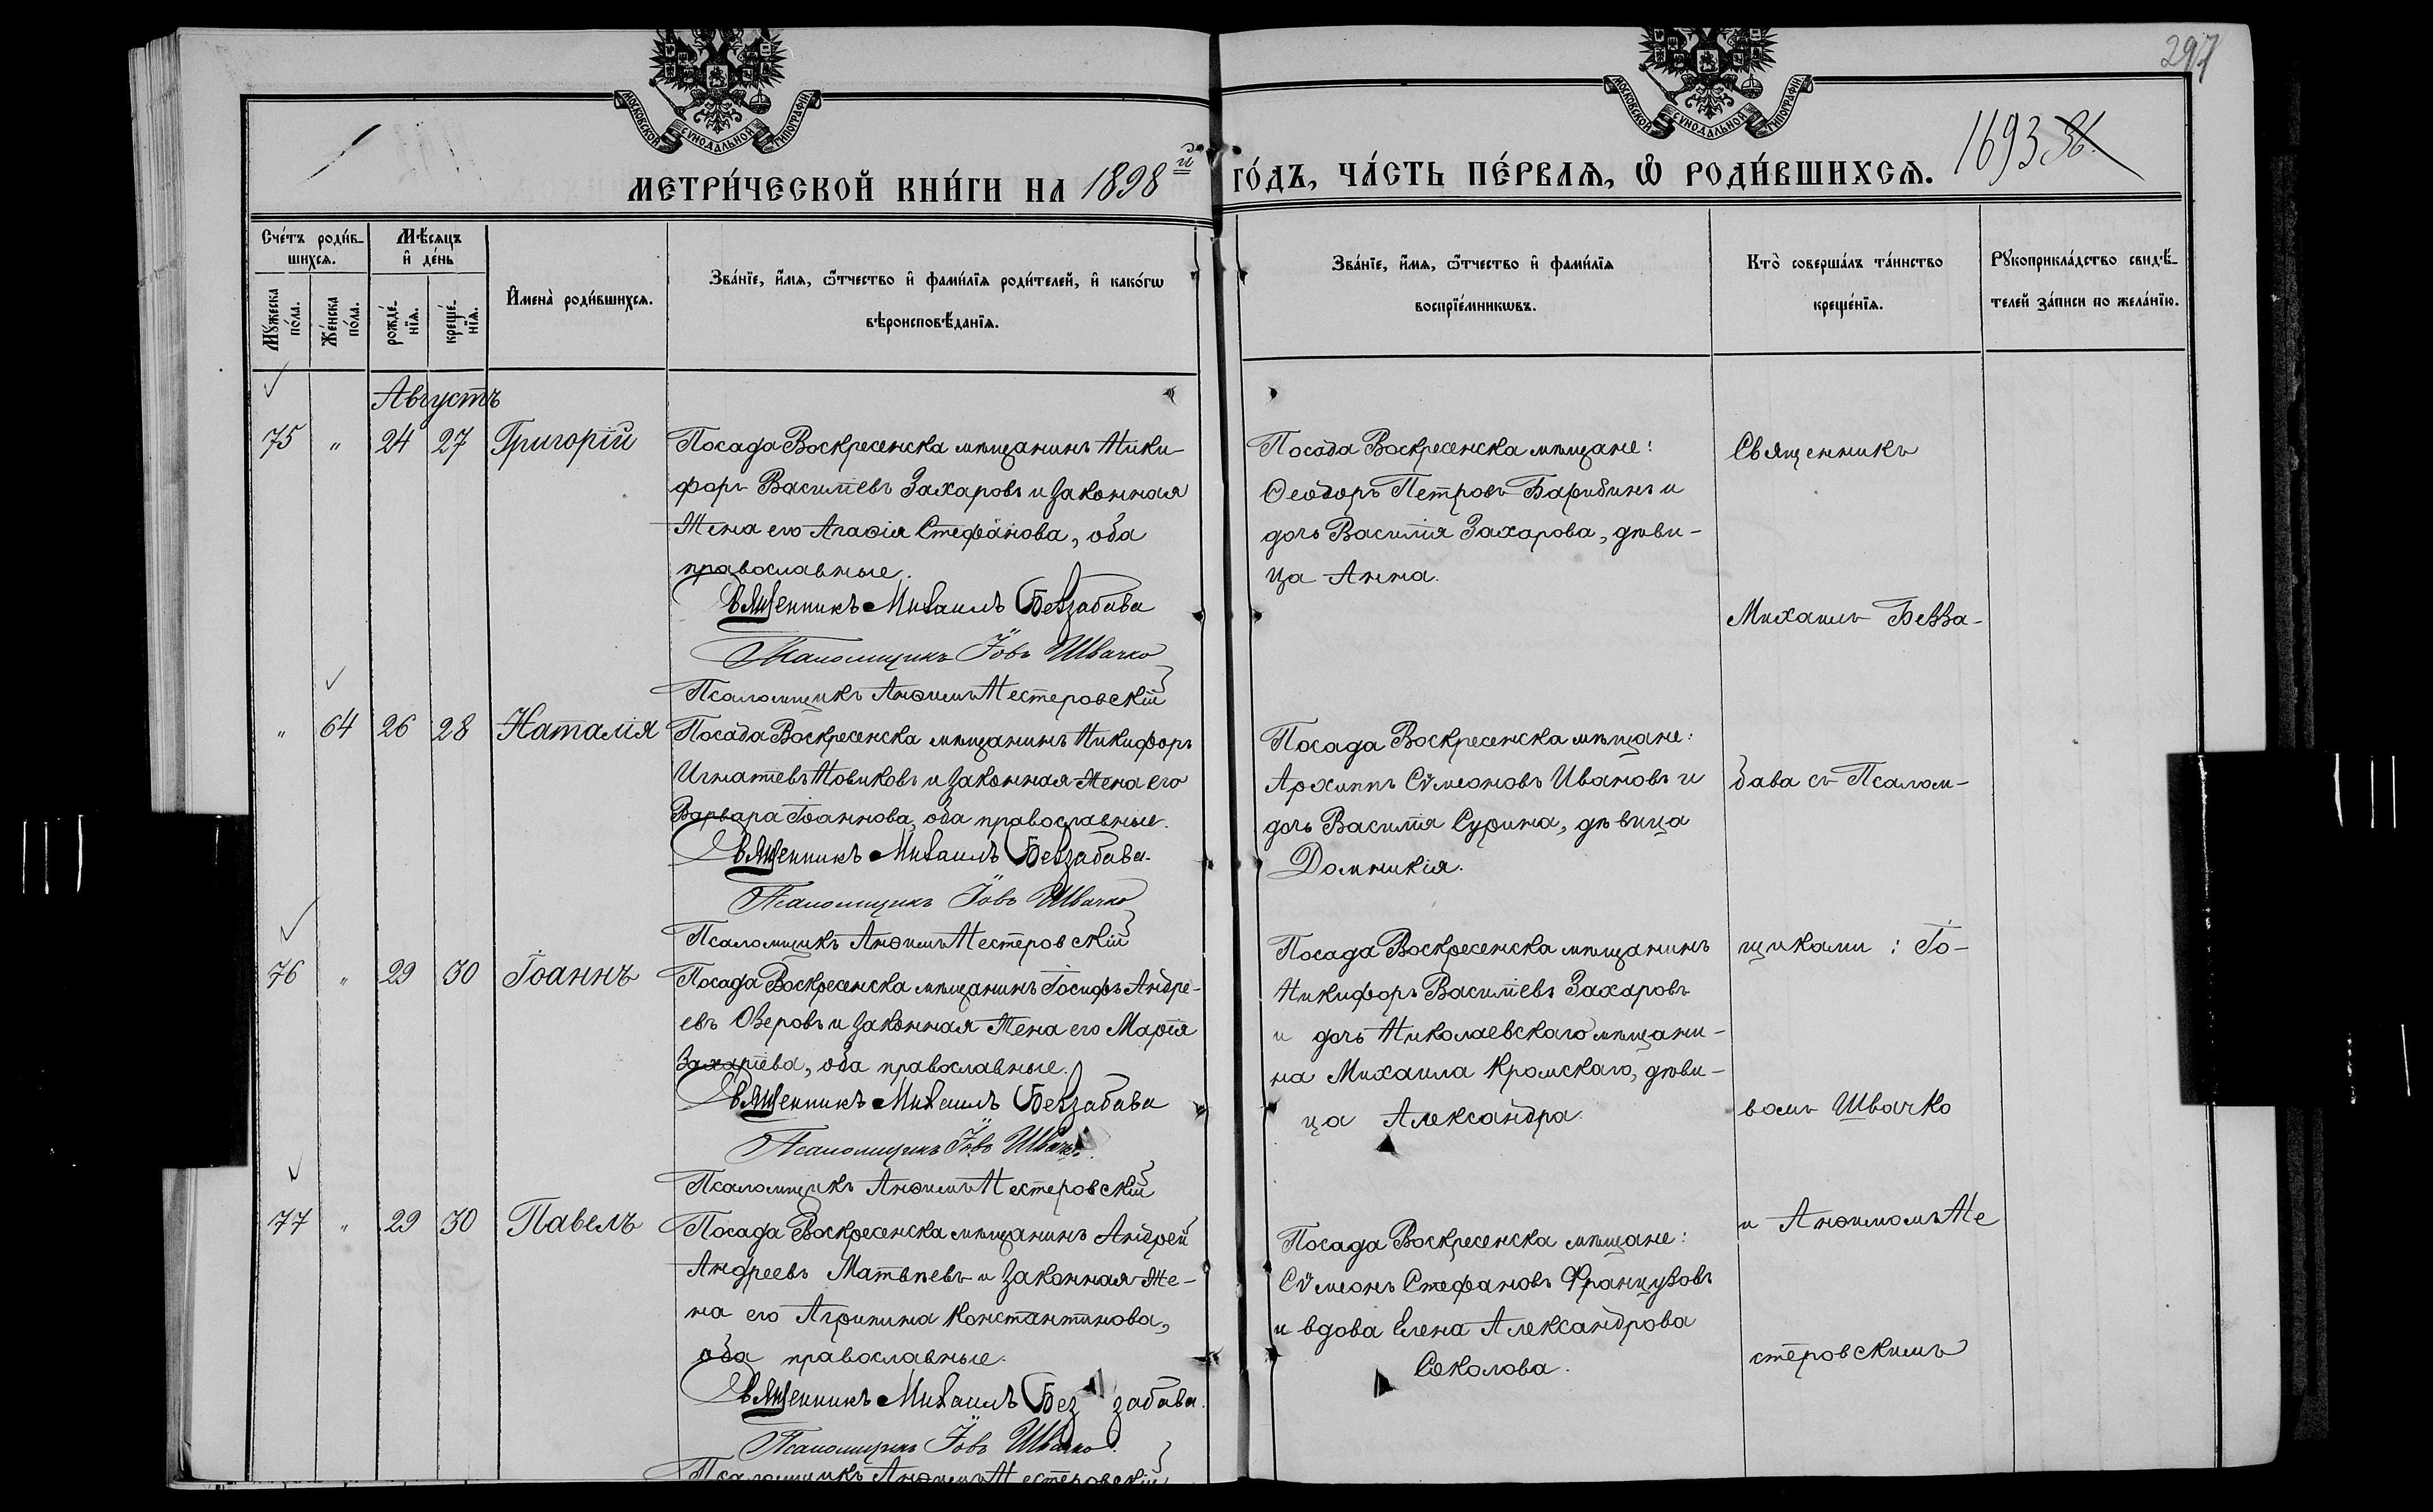 297
МОСКОВСКОЙ СѴНОДАЛЬНОЙ ТИПОГРАФІИ
МОСКОВСКОЙ СѴНОДАЛЬНОЙ ТИПОГРАФІИ
МЕТРИ́ЧЕСКОЙ КНИ́ГИ НА 1898й ГО́ДЪ, ЧА́СТЬ ПЕ́РВАѦ, Ѡ РОДИ́ВШИХСѦ.
1693 36.
Сче́тъ роди́в-
шихсѧ.
Мꙋ́жеска по́ла.
Же́нска по́ла.
Мѣ́сѧцъ
и҆ де́нь
рожде́-
нїѧ.
креще́-
нїѧ.
И҆мена̀ роди́вшихсѧ.
Зва́нїе, и҆́мѧ, ѻ҆́тчество и҆ фами́лїѧ роди́телей, и҆ како́гѡ
вѣроисповѣ́данїѧ.
Зва́нїе, и҆́мѧ, ѻ҆́тчество и҆ фами́лїѧ
воспрїе́мникѡвъ.
Кто̀ соверша́лъ та́инство
креще́нїѧ.
Рꙋкоприкла́дство свидѣ́-
телей за́писи по жела́нїю.
Августъ
75 " 24 27 Григорій
Посада Воскресенска мѣщанинъ Ники-
форъ Василіевъ Захаровъ и законная
жена его Агаѳія Стефанова, оба
православные.
Священникъ Михаилъ Беззабава
Псаломщикъ Іовъ Швачко
Псаломщикъ Анѳимъ Нестеровскій
Посада Воскресенска мѣщане:
Ѳеодоръ Петровъ Барибинъ и
дочь Василія Захарова, дѣви-
ца Анна.
" 64 26 28 Наталія
Посада Воскресенска мѣщанинъ Никифоръ
Игнатіевъ Новиковъ и законная жена его
Варвара Іоаннова, оба православные.
Священникъ Михаилъ Беззабава.
Псаломщикъ Іовъ Швачко
Псаломщикъ Анѳимъ Нестеровскій
Посада Воскресенска мѣщане:
Архиппъ Сѵмеоновъ Ивановъ и
дочь Василія Сурина, дѣвица
Домникія.
76 " 29 30 Іоаннъ
Посада Воскресенска мѣщанинъ Іосифъ Андре-
евъ Озеровъ и законная жена его Марія
Захаріева, оба православные.
Священникъ Михаилъ Беззабава
Псаломщикъ Іовъ Швачко
Псаломщикъ Анѳимъ Нестеровскій
Посада Воскресенска мѣщанинъ
Никифоръ Василіевъ Захаровъ
и дочь Николаевскаго мѣщани-
на Михаила Кромскаго, дѣви-
ца Александра.
77 " 29 30 Павелъ
Посада Воскресенска мѣщанинъ Андрей
Андреевъ Матвѣевъ и законная же-
на его Агрипина Константинова,
оба православные.
Священникъ Михаилъ Беззабава.
Псаломщикъ Іовъ Швачко.
Псаломщикъ Анѳимъ Нестеровскій
Посада Воскресенска мѣщане:
Сѵмеонъ Стефановъ Французовъ
и вдова Елена Александрова
Соколова.
Священникъ
Михаилъ Безза-
бава съ Псалом-
щиками: Іо-
вомъ Швачко
и Анѳимомъ Не
стеровскимъ